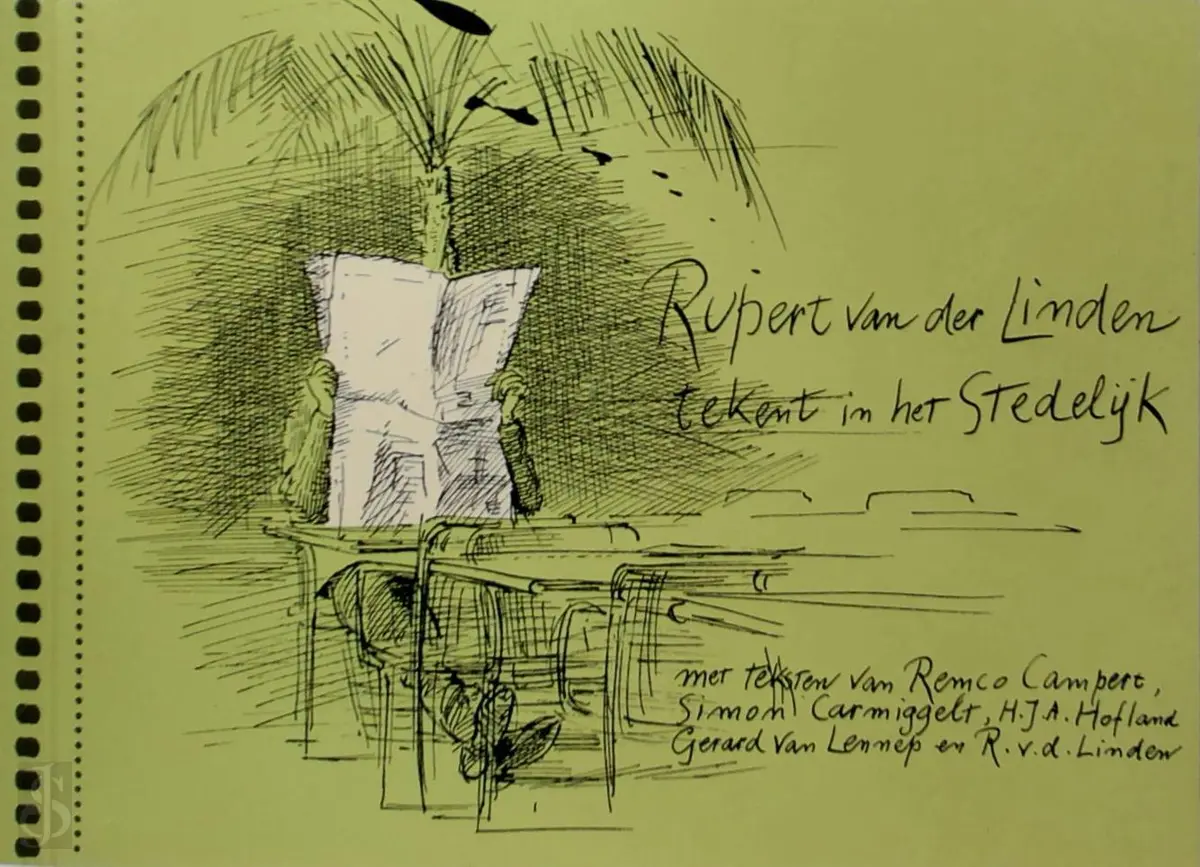 Rupert van der Linden
tekent in het Stedelijk
met teksten van Remco Campert,
Simon Carmiggelt, H.J.A. Hofland
Gerard van Lennep en R. v. d. Linden